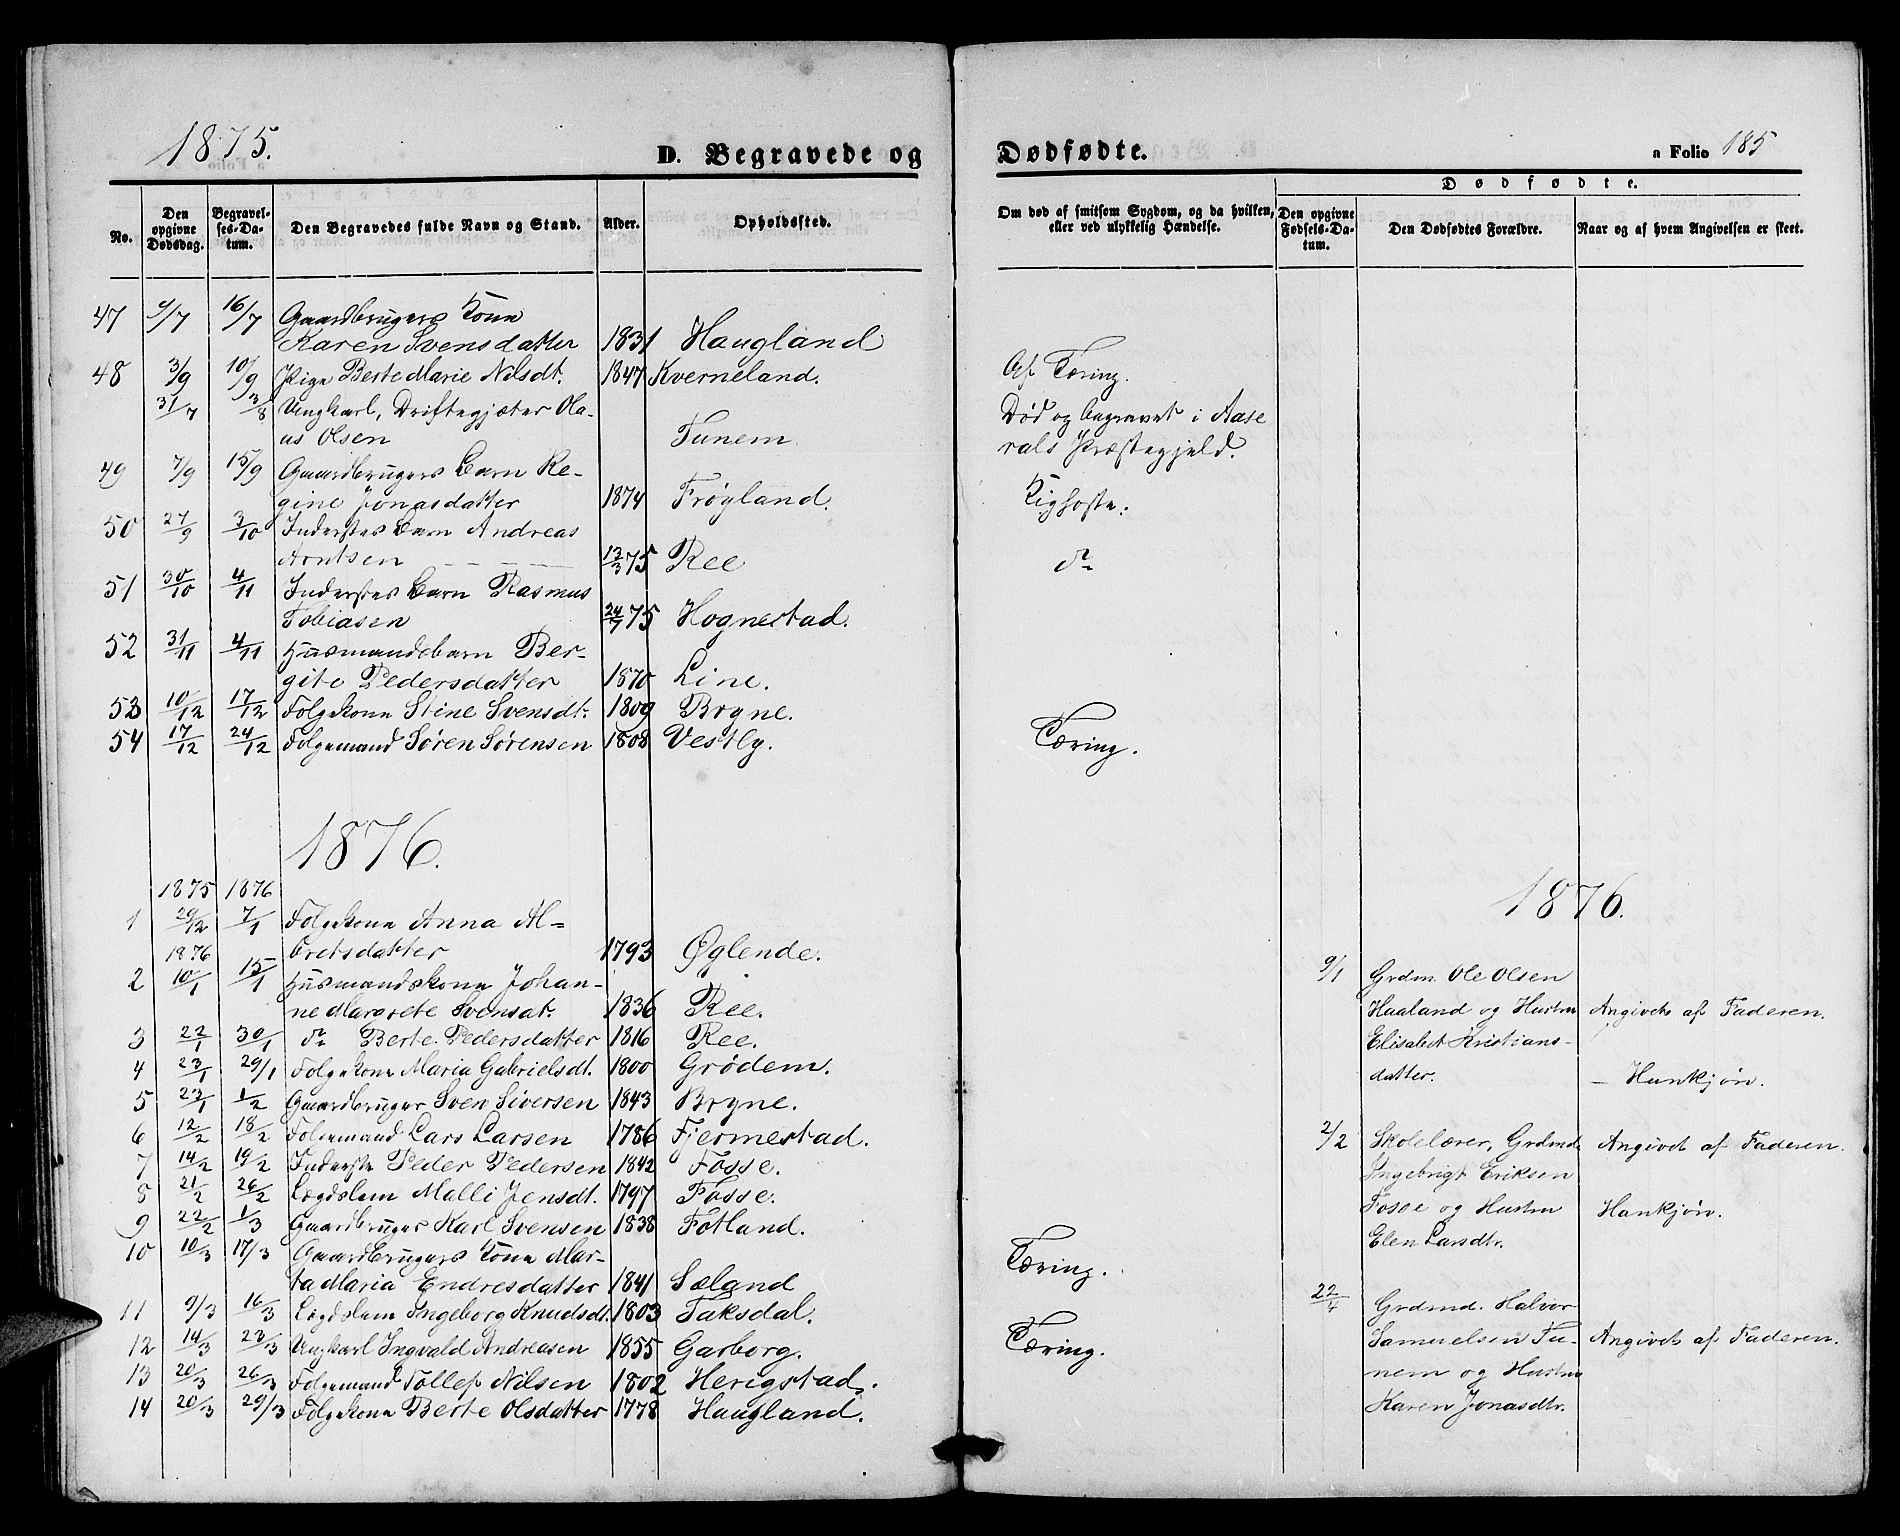 1875.
D. Begravede og
Dødfødte.
a Folio 185
No.
Den opgivne Dødsdag.
Begravelses-Datum.
Den Begravedes fulde Navn og Stand.
Alder.
Opholdssted.
Om død af smitsom Sygdom, og da hvilken, eller ved ulykkelig Hændelse.
Dødfødte.
Den opgivne Fødsels-Datum.
Den Dødfødtes Forældre.
Naar og af hvem Angivelsen er skeet.
47 9/7 16/7 Gaardbrugers Kone
Karen Svensdatter 1831 Haugland
48 3/9 10/9 Pige Berte Marie Nilsdt. 1847 Kverneland. Af Tæring.
31/7 3/8 Ungkarl, Driftegjæter Ola- Død og begravet i Aase
us Olsen Tunem rals Præstegjeld.
49 7/9 15/9 Gaardbrugers Barn Re-
gine Jonasdatter 1874 Frøyland. Kighoste.
50 27/9 3/10 Inderstes Barn Andreas
Arntsen 13/3 75 Ree do
51 30/10 4/11 Inderstes Barn Rasmus
Tobiasen 24/7 75 Hognestad.
52 31/11 4/11 Husmandsbarn Ber-
gite Pedersdatter 1870 Line.
53 10/12 17/12 Folgekone Stine Svensdt. 1809 Bryne.
54 17/12 24/12 Folgemand Søren Sørensen 1808 Vestly. Tæring.
1876.
1875 1876
1 29/12 7/1 Folgekone Anna Al=
1876 bretsdatter 1793 Øglende.
2 10/1 15/1 Husmandskone Johan-
ne Margrete Svensdt. 1836 Ree.
3 22/1 30/1 do Berte Pedersdatter 1816 Ree.
4 23/1 29/1 Folgekone Maria Gabrielsdt. 1800 Grødem.
5 23/1 1/2 Gaardbruger Sven Siversen 1843 Bryne.
6 12/2 18/2 Folgemand Lars Larsen 1786 Fjermestad.
7 14/2 19/2 Inderste Peder Pedersen 1842 Fosse.
8 21/2 26/2 Lægdslem Malli Jensdt. 1797 Fosse.
9 22/2 1/3 Gaardbruger Karl Svensen 1838 Fotland.
10 10/3 17/3 Gaardbrugers Kone Mar-
ta Maria Endresdatter 1841 Sæland Tæring.
11 9/3 16/3 Lægdslem Ingeborg Knudsdt. 1803 Taksdal.
12 14/3 23/3 Ungkarl Ingvald Andreasen 1855 Garborg. Tæring.
13 20/3 26/3 Folgemand Tollef Nilsen 1802 Herigstad.
14 20/3 29/3 Folgekone Berte Olsdatter 1778 Haugland.
1876.
9/1 Grdm. Ole Olsen
Haaland og Hustru Angivet af Faderen.
Elisabet Kristians-
datter. – Hankjøn.
2/2 Skolelærer, Grdmd. Angivet af Faderen.
Ingebrigt Eriksen
Fosse og Hustru Hankjøn.
Elen Larsdtr.
22/4 Grdmd. Halvor
Samuelsen Tu- Angivet af Faderen.
nem og Hustru
Karen Jonasdtr.